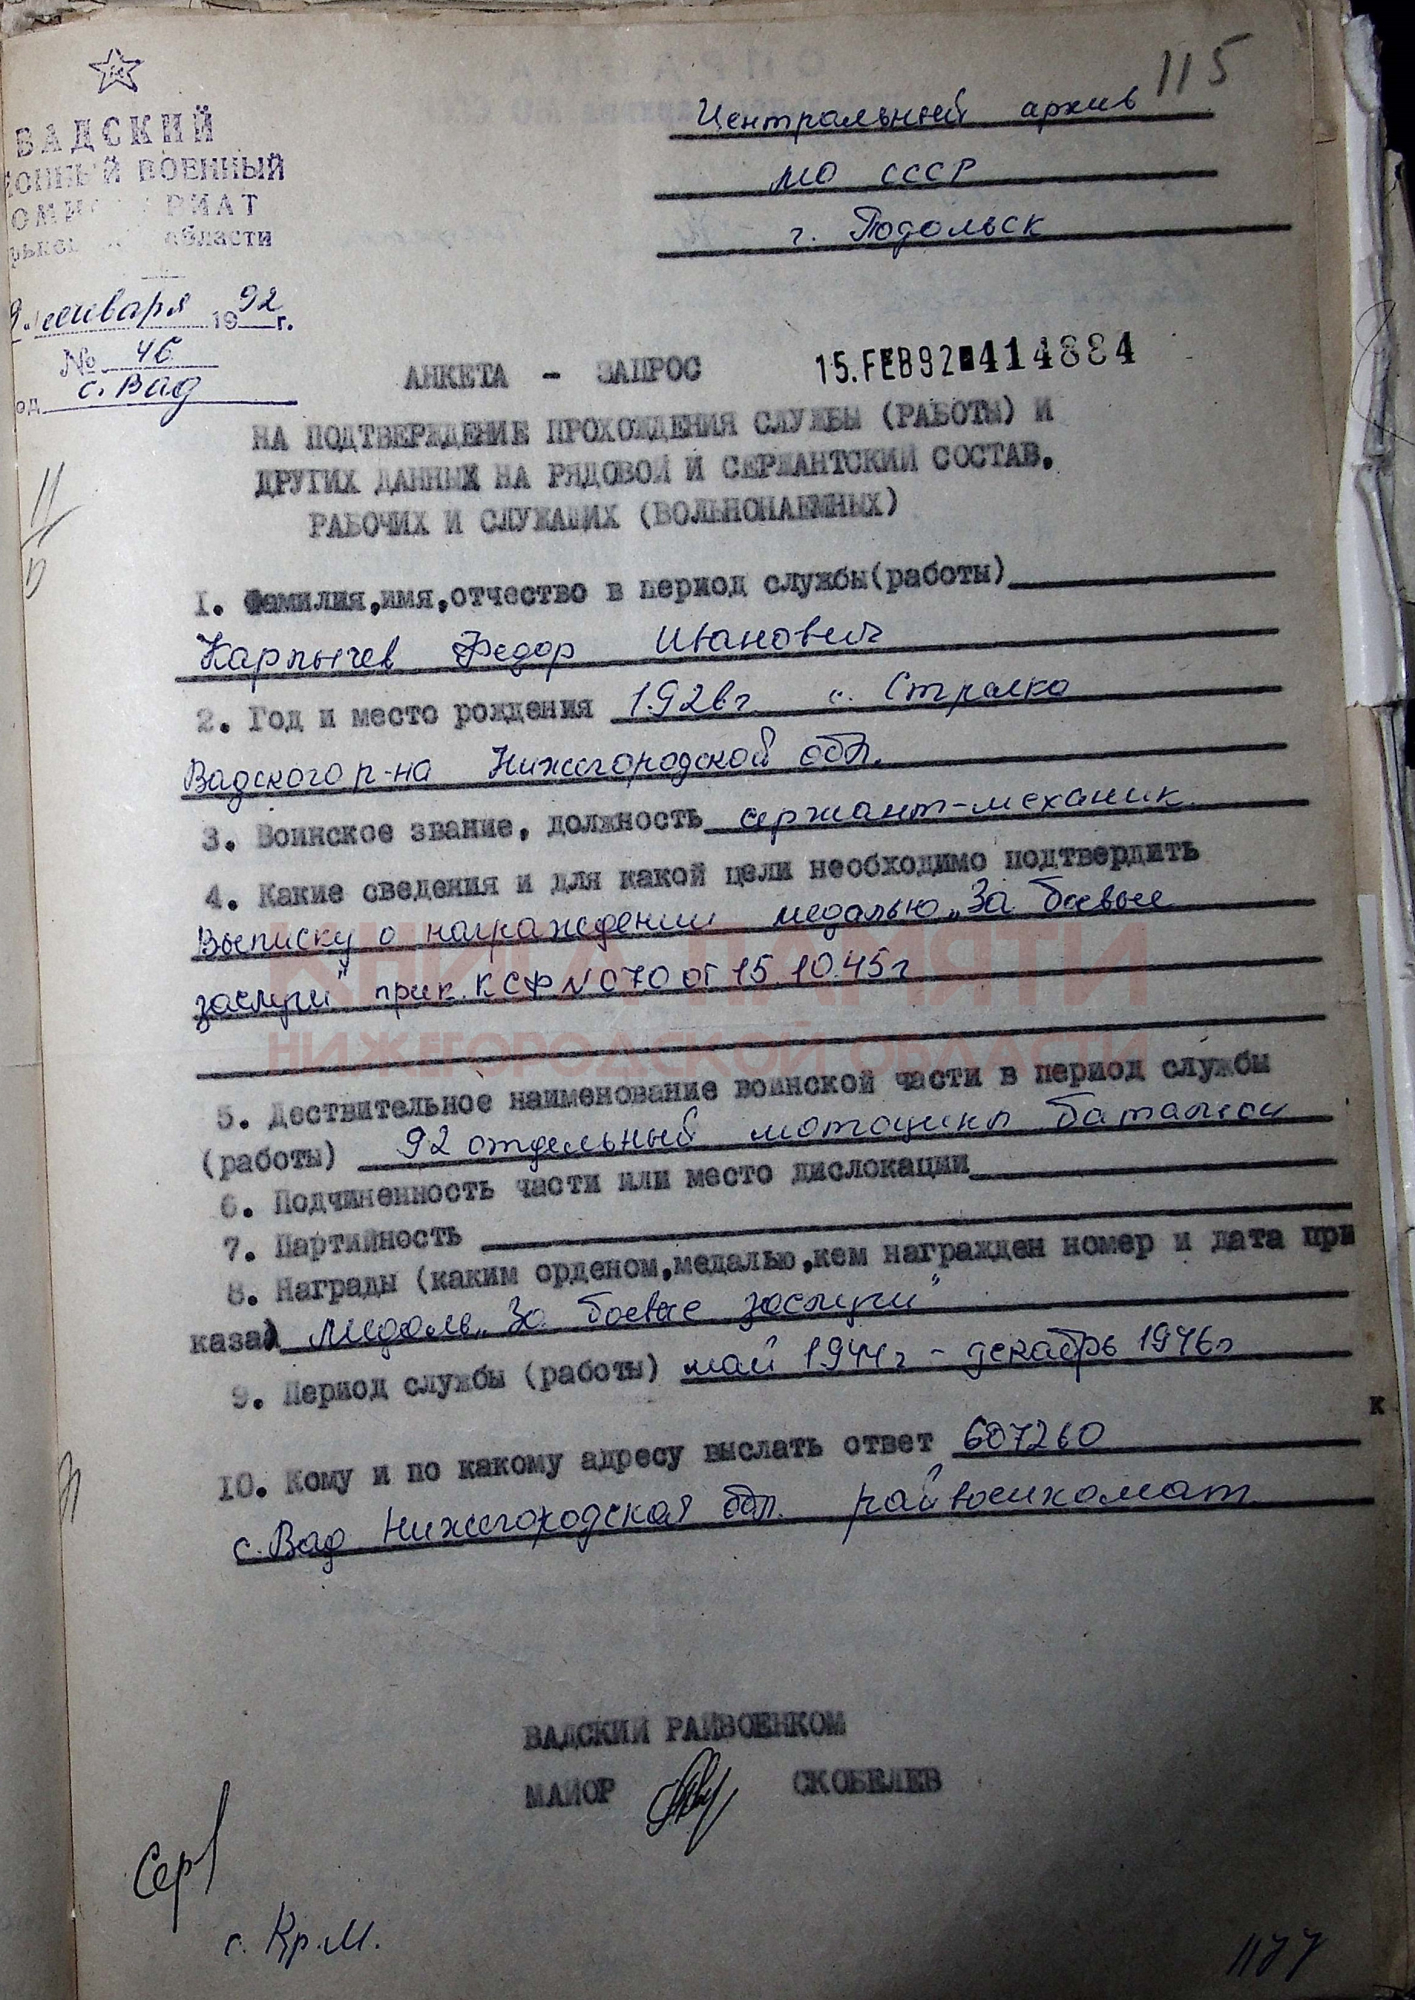 115
ВАДСКИЙ
ЙОННЫЙ ВОЕННЫЙ
ОМИС РИАТ
области
января 1992 г.
№ 46
с. Вад
Центральный архив
МО СССР
г. Подольск
15.FEB92 414884
АНКЕТА - ЗАПРОС
НА ПОДТВЕРЖДЕНИЕ ПРОХОЖДЕНИЯ СЛУЖБЫ (РАБОТЫ) И
ДРУГИХ ДАННЫХ НА РЯДОВОЙ И СЕРЖАНТСКИЙ СОСТАВ,
РАБОЧИХ И СЛУЖАЩИХ (ВОЛЬНОНАЕМНЫХ)
1. Фамилия,имя,отчество в период службы(работы)
Карпычев Федор Иванович
2. Год и место рождения 1926г. с. Стрелка
Вадского р-на Нижегородской обл.
3. Воинское звание, должность сержант-механик
4. Какие сведения и для какой цели необходимо подтвердить
Выписку о награждении медалью „За боевые
заслуги" прик. КСФ N 070 от 15.10.45г
КНИГА ПАМЯТИ
НИЖЕГОРОДСКОЙ ОБЛАСТИ
5. Дествительное наименование воинской части в период службы
(работы) 92 отдельный мотоцикл баталион
6. Подчиненность части или место дислокации
7. Партийность
8. Награды (каким орденом,медалью,кем награжден номер и дата при
каза) Медаль „За боевые заслуги"
9. Период службы (работы) май 1944г - декабрь 1946г
к
10. Кому и по какому адресу выслать ответ 607260
с. Вад Нижегородская обл. райвоенкомат
ВАДСКИЙ РАЙВОЕНКОМ
МАЙОР СКОБЕЛЕВ
Сер
с. Кр.М.